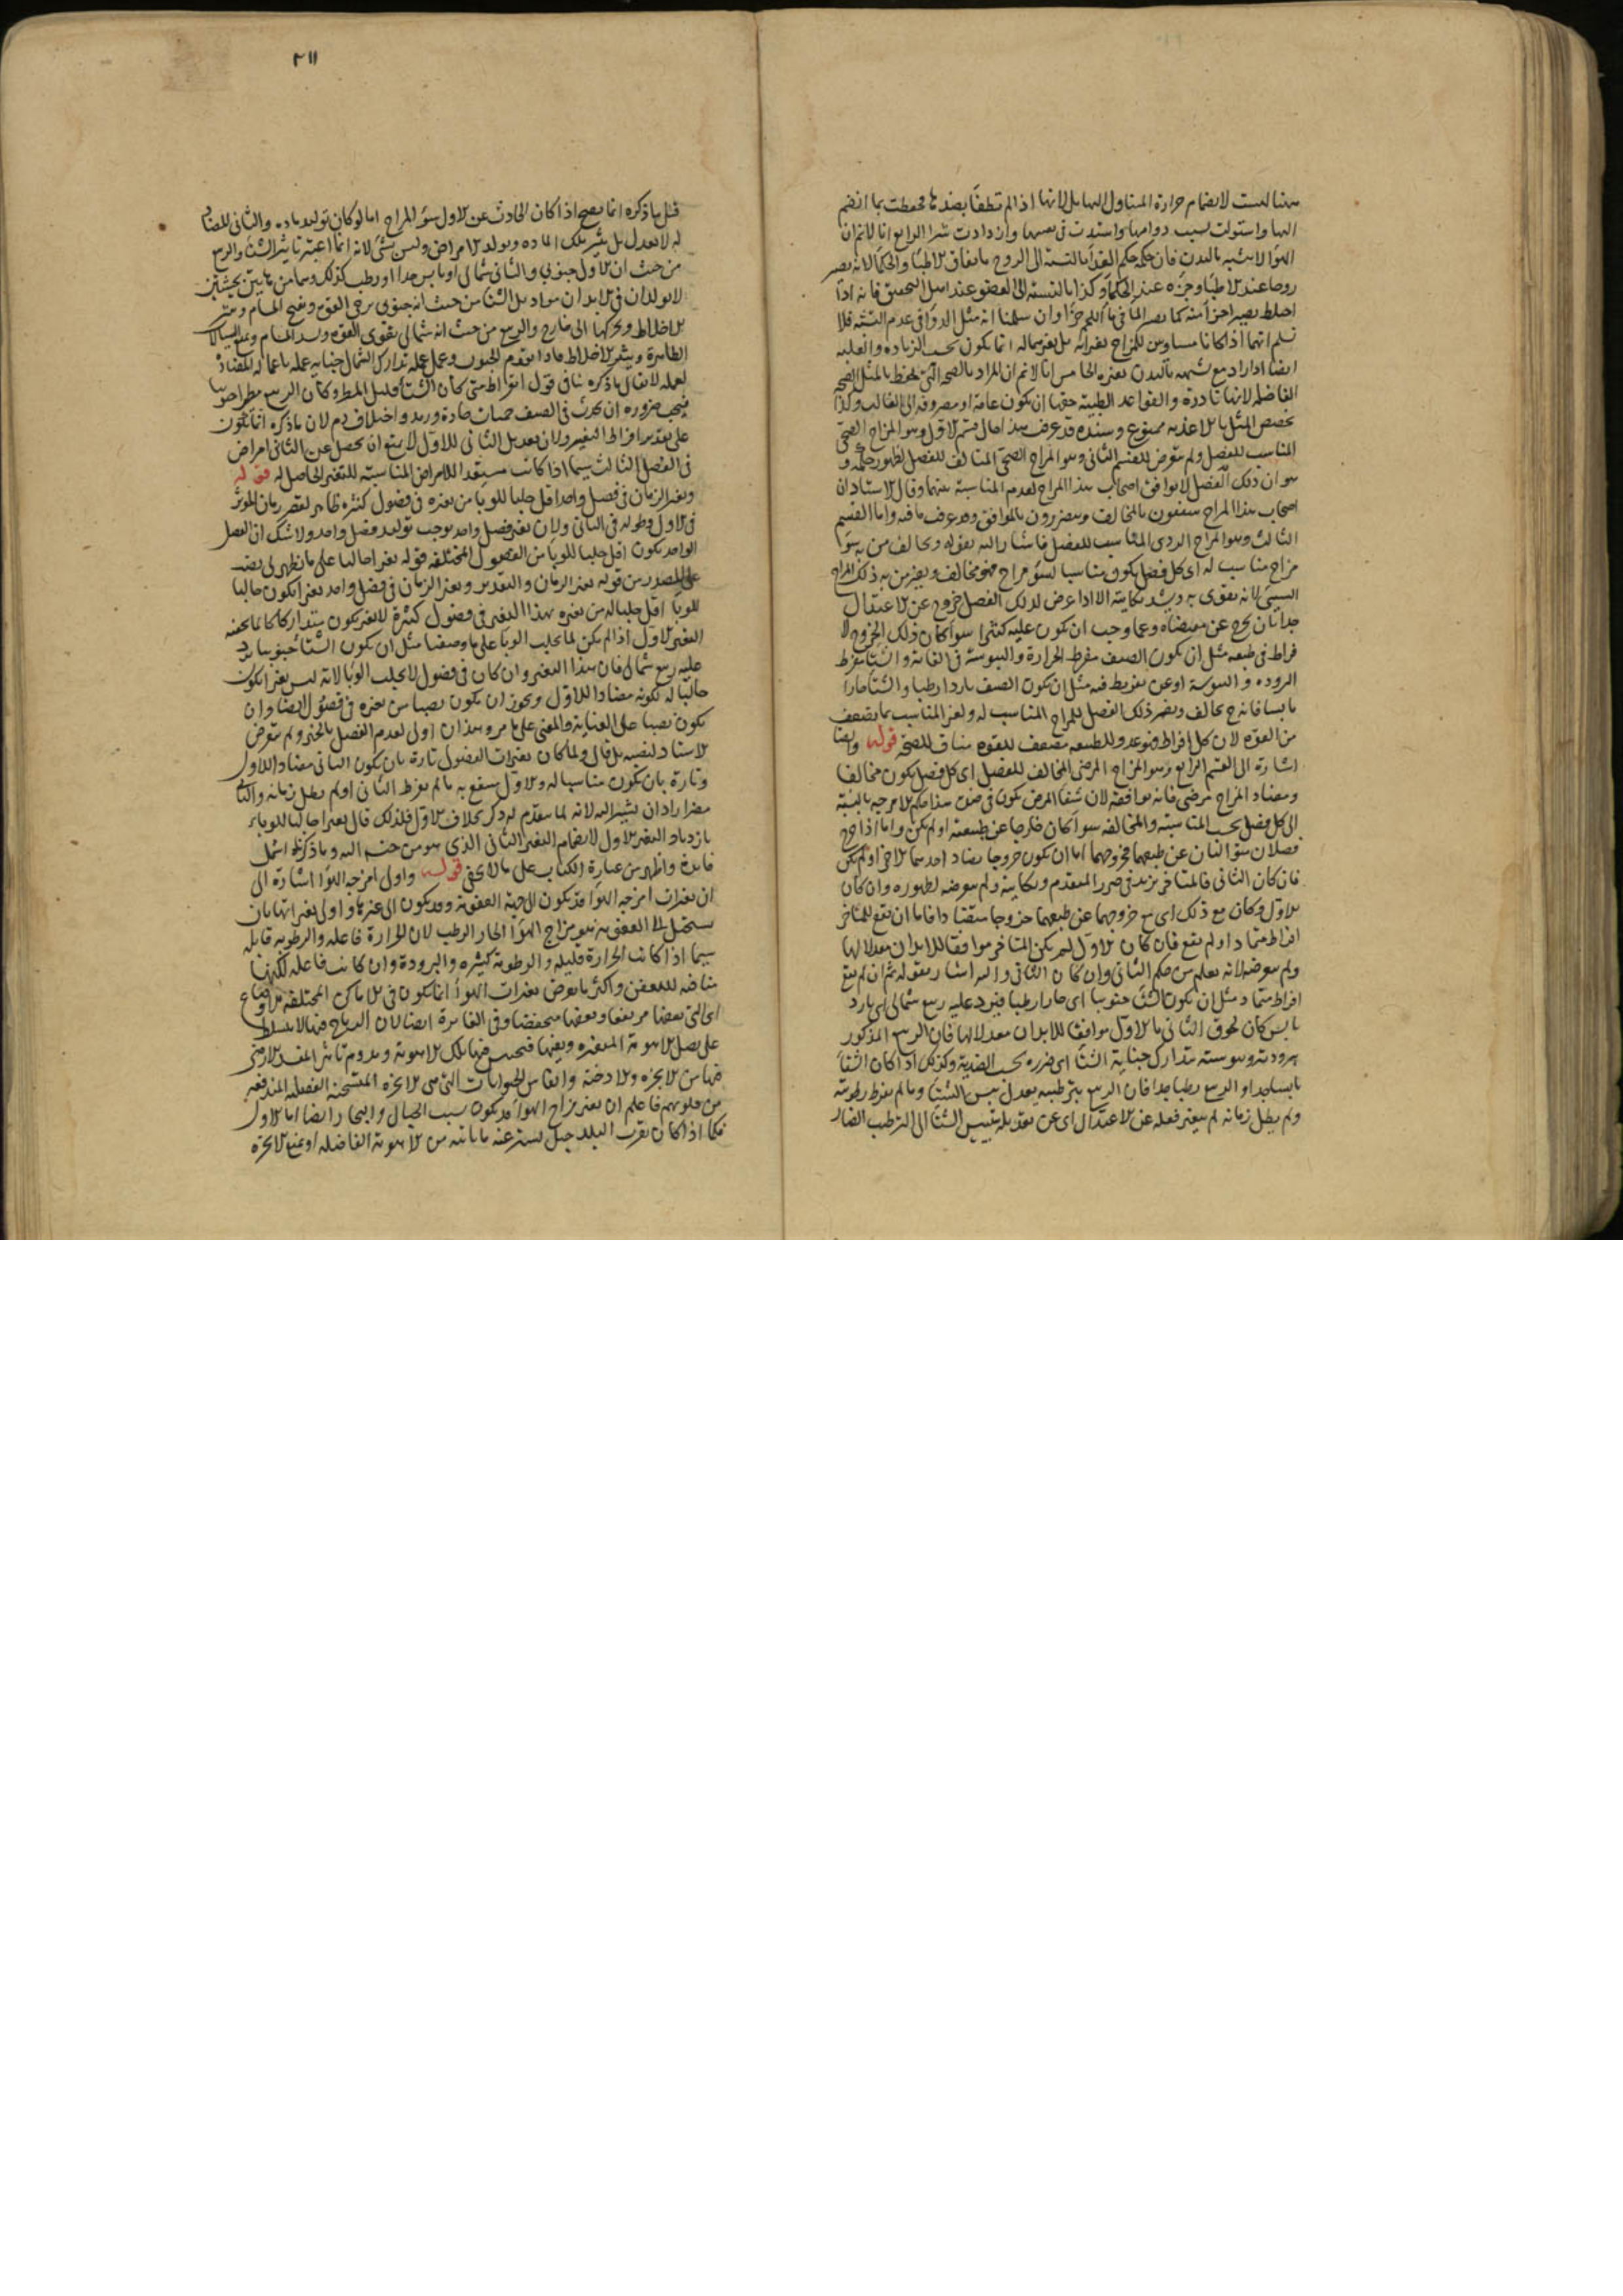 ههنا ليست لانضمام حرارة المتناول اليها بل لانها اذا لم تطفأ بضدها تحفظت بما انضم
اليها واستولت بسبب دوامها واشتدت في نفسها وازدادت شرا الرابع انا لا نم ان
الهوا لا يشبه بالبدن فان حكمه حكم الغذا بالنسبة الى الروح باتفاق الاطبا والحكما لانه يصير
روحا عند الاطبا وجزه عند الحكما وكذا بالنسبة الى العضو عند اهل التحقيق فانه اذا
اختلط يصير اجزا منه كما يصير الما في ما اللحم جزا وان سلمنا انه مثل الدوا في عدم التشبه فلا
نسلم انهما اذا كانا مساويين للمزاج لم يغيراه بل يغير حاله انما يكون بحسب الزيادة والغلبة
ايضا اذا زاد مع شبهه بالبدن يغيره الخامس انا لا نم ان المراد بالصحة التي تحفظ بالمثل الصحة
الفاضلة لانها نادرة والقواعد الطبية حقها ان يكون عامة او مصروفة الى الغالب وكذا
تخصيص المثل بالاغذية ممنوع وسنده قد عرف هذا حال قسم الاول وهو المزاج الصحي
المناسب للفصل ولم يتعرض للقسم الثاني وهو المزاج الصحي المخالف للفصل لظهور حكمه و
هو ان ذلك الفصل لا يوافق اصحاب هذا المزاج لعدم المناسبة بينهما وقال الاستاد ان
اصحاب هذا المزاج ينتفعون بالمخالف ويتضررون بالموافق وقد عرف ما فيه واما القسم
الثالث وهو المزاج الردي المناسب للفصل فاشار اليه بقوله ويخالف من به سوء
مزاج مناسب له اى كل فصل يكون مناسبا لسوء مزاج فهو مخالف ويضر من به ذلك المزاج
السيئ لانه يقوى به ويشتد نكايته الا اذا عرض لذلك الفصل خروج عن الاعتدال
جدا بان يخرج عن مقتضاه وعما وجب ان يكون عليه كثيرا سوا كان ذلك الخروج لا
فراط في طبعه مثل ان يكون الصيف مفرط الحرارة واليبوسة في الغاية والشتا مفرط
البرودة و اليبوسة او عن تفريط فيه مثل ان يكون الصيف باردا رطبا والشتا حارا
يابسا فانه ح يخالف ويضر ذلك الفصل للمزاج المناسب له ولغير المناسب بما يضعف
من القوة لان كل افراط فهو عدو للطبيعة مضعف للقوة مناف للصحة قوله وايضا
اشارة الى القسم الرابع وهو المزاج المرضي المخالف للفصل اى كل فصل يكون مخالفا
ومضاد المزاج مرضي فانه يوافقه لان شفا المرض يكون في ضده هذا حكم الامزجة بالنسبة
الى كل فصل بحسب المناسبة والمخالفة سوا كان خارجا عن طبيعته او لم يكن واما اذا خرج
فصلان متواليان عن طبعهما فخروجهما اما ان يكون خروجا يضاد احدهما الاخر او لم يكن
فان كان الثاني فالمتاخر يزيد في ضرر المتقدم ونكايته ولم يتعرضه لظهوره وان كان
الاول وكان مع ذلك اى مع خروجهما عن طبعهما خروجا متضادا فاما ان يقع للمتاخر
افراط متماد او لم يقع فان كان الاول لم يكن المتاخر موافقا للابدان معدلا لها
ولم يتعرضه لانه يعلم من حكم الثاني وان كان الثاني واليه اشار بقوله ثم ان لم يقع
افراط متماد مثل ان يكون الشتا جنوبيا اى حارا رطبا فيرد عليه ربيع شمالي اى بارد
يابس كان لحوق الثاني بالاول موافقا للابدان معدلا لها فان الربيع المذكور
ببرودته ويبوسته يتدارك جناية الشتا اى ضرره بحسب الضدية وكذلك اذا كان الشتا
يابسا جدا والربيع رطبا جدا فان الربيع بترطيبه يعدل يبس الشتا وما لم يفرط رطوبته
ولم يطل زمانه لم يتغير فعله عن الاعتدال اى عن تعديله بتيبيس الشتا الى الترطيب الضار
٢١١
قيل ما ذكره انما يصح اذا كان الحادث عن الاول سوء المزاج اما لو كان توليد مادة والثاني للمضاد
له لا يعدل بل يثير تلك المادة ويولد الامراض وليس بشئ لانه انما اعتبر تاثير الشتا والربيع
من حيث ان الاول جنوبي والثاني شمالي او يابس جدا او رطب كذلك وهما من هاتين الحيثيتين
لا يولدان في الابدان مواد بل الشتا من حيث انه جنوبي يرخي القوة ويفتح المسام ويثير
الاخلاط ويحركها الى خارج والربيع من حيث انه شمالي يقوي القوة ويسد المسام
لعمله لا يقال ما ذكره ينافي قول ابقراط متى كان الشتا قليل المطر وكان الربيع مطيرا جنوبيا
فيجب ضرورة ان يحدث في الصيف حميات حادة ورمد واختلاف دم لان ما ذكره انما يكون
على تقدير افراط التغير ولان تعديل الثاني للاول لا يمنع ان يحصل عن الثاني امراض
في الفصل الثالث سيما اذا كانت مستعدا للامراض المناسبة للتغير الحاصل له قوله
وتغير الزمان في فصل واحد اقل جلبا للوبا من تغيره في فصول كثيرة ظاهر لقصر زمان المؤثر
في الاول وطوله في الثاني ولان تغير فصل واحد يوجب توليد فصل واحد ولا شك ان الفصل
الواحد يكون اقل جلبا للوبا من الفصول المختلفة قوله تغيرا جالبا على ما يظهر لي نصب
على المصدر من قوله تغير الزمان والتقدير وتغير الزمان في فصل واحد تغيرا يكون جالبا
للوبا اقل جلبا له من تغيره بهذا التغير في فصول كثيرة لا تغير يكون متداركا
التغير الاول اذا لم يكن لما يجلب الوبا على ما وصفنا مثل ان يكون الشتا جنوبيا يرد
عليه ربيع شمالي فان هذا التغير وان كان في فصول لا يجلب الوبا لانه ليس تغيرا يكون
جالبا له لكونه مضادا للاول ويجوز ان يكون نصبا من تغيره في فصول ايضا وان
يكون نصبا على الغاية والمعنى على ما مر وهذان اولى لعدم الفصل بالخبر ولم يتعرض
الاستاد لنصبه بل قال ولما كان تغيرات الفصول تارة بان يكون الثاني مضادا للاول
وتارة بان يكون مناسبا له والاول ينتفع به ما لم يفرط الثاني او لم يطل زمانه والثاني
مضر اراد ان يشير اليه لانه لما تقدم له ذكر بخلاف الاول فلذلك قال تغيرا جالبا للوبا
بازدياد التغير الاول لانضمام التغير الثاني الذي هو من جنسه اليه وما ذكرناه اشمل
فائدة واظهر من عبارة الكتاب على ما لا يخفى قوله واول امزجة الهوا اشارة الى
ان تغيرات امزجة الهوا قد يكون الى جهة العفونة وقد يكون الى غيرها واولى تغيراتها بان
يستحيل الى العفونة هو مزاج الهوا الحار الرطب لان الحرارة فاعلة والرطوبة قابلة
سيما اذا كانت الحرارة قليلة والرطوبة كثيرة والبرودة وان كانت فاعلة لكنها
منافية للتعفن واكثر ما يعرض تغيرات الهوا انما يكون في الاماكن المختلفة الاوضاع
اى التي بعضها مرتفعا وبعضها منخفضا وفي الغائرة ايضا لان الرياح فيها لا يتسلط
على فصل الاهوية المتغيرة فيحتبس فيها تلك الاهوية ويدوم تاثير المفسد
فيها من الابخرة والادخنة وانفاس الحيوانات التي هي الابخرة المتسخنة الفضلية المندفعة
من قلوبهم فاعلم ان تغير مزاج الهوا قد يكون بسبب الجبال والبحار ايضا اما الاول
فكما اذا كان بقرب البلد جبل يستر عنه ما ياتيه من الاهوية الفاضلة او يمنع الابخرة